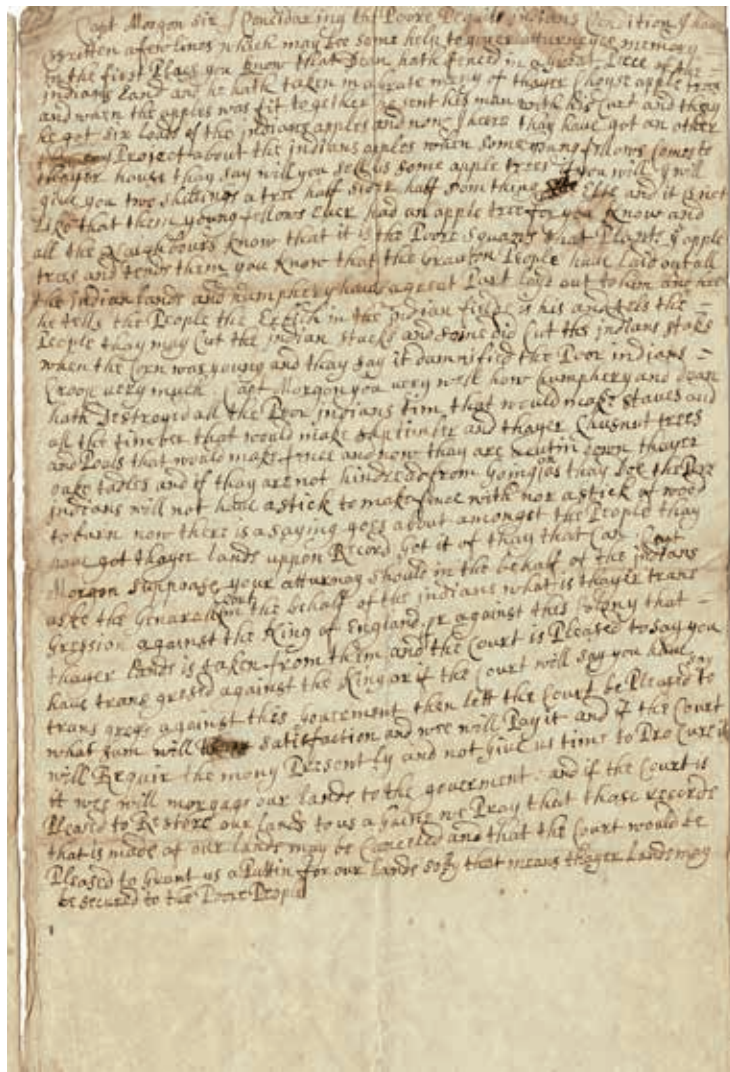 Capt Morgon Sir I Concidaring the Poore Pequits indians Condition I have
written a few lines which may bee some help to youer atturneyes memory
in the first Place you know that Dean hath fenced in a great Peece of the
indians Land and he hath taken in abrate many of thayer Choyse apple trees
and when the apples was fit to gether he sent his man with his Cart and thay
he got six loads of the indians apples and now I heere thay have got an other
Project about the indians apples when some young fellows Comes to
thayer house thay say will you sell us some apple trees if you will I will
give you two shillings a tree half sider half somthing Else and it is not
Like that them young fellows ever had an apple tree for you know and
all the Neighbours know that it is the Poore Squazes that Plants ye apple
trees and tends them you know that the Groaton People have Laid out all
the indian lands and humphery have a great Part Layd out to him and
he tells the People the English in the indian fields is his and tels the
People thay may Cut the indian stacks and some did Cut the indians stoks
when the Corn was young and thay say it damnified the Poor indians
Croop very much Capt Morgon you very well how humphery and dean
hath destroyed all the Poor indians tim that would make staves and
all the timber that would make and thayer Chesnut trees
and Pools that would make fence and now thay are down thayer
oake and if thay are not hindred from going as thay doe the Pore
indians will not have a stick to make fence with nor a stick of wood
to burn now there is a saying goes about amongst the People thay
have got thayer lands uppon Record got it of thay that Can Capt
Morgon Suppoase your atturnay should in the behalf of the indians
aske the Genarall Court in the behalf of the indians what is thayer trans
Gression against the King of England or against this Colony that
thayer Lands is taken from them and the Court is Pleased to say you
have trans gresed against the King or if the Court will say you have
trans gress against this Goverment then lett the Court be Pleased to say
what sum will satisfaction and wee will Pay it and if the Court
will Requir the mony Presently and not give us time to ProCure it
it wee will morgage our lands to the goverment and if the Court is
Pleased to Restore our Lands to us a gaine we Pray that those records
that is made of our lands may be Canceled and that the Court would be
Pleased to Grant us a Pattin for our lands so by that means thayer Lands may
be secured to the Poore People